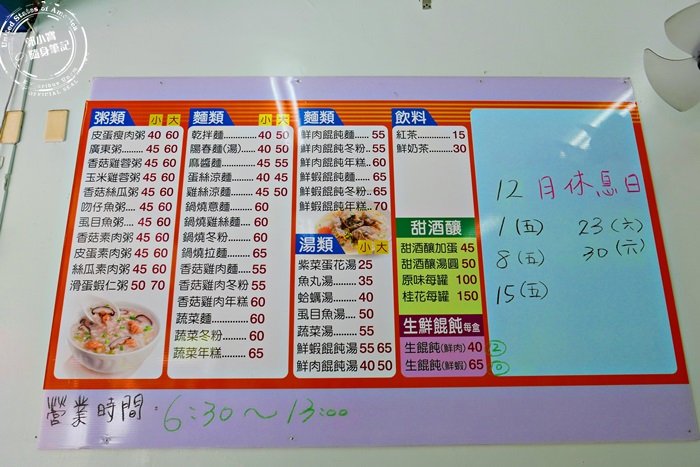 United States of America
鄭小寶
隨身筆記
OFFICIAL SEAL
粥類 小 大
皮蛋瘦肉粥 40 60
廣東粥........ 45 60
香菇雞蓉粥 45 60
玉米雞蓉粥 45 60
香菇絲瓜粥 45 60
吻仔魚粥.... 45 60
虱目魚粥.... 45 60
香菇素肉粥 45 60
皮蛋素肉粥 45 60
絲瓜素肉粥 45 60
滑蛋蝦仁粥 50 70
麵類 小 大
乾拌麵.......... 40 50
陽春麵(湯).... 40 50
麻醬麵.......... 45 55
蛋絲涼麵...... 40 45
雞絲涼麵...... 45 50
鍋燒意麵........ 60
鍋燒雞絲麵.... 60
鍋燒冬粉........ 60
鍋燒拉麵........ 65
香菇雞肉麵.... 55
香菇雞肉冬粉 55
香菇雞肉年糕 60
蔬菜麵............ 60
蔬菜冬粉........ 60
蔬菜年糕........ 65
麵類
鮮肉餛飩麵..... 55
鮮肉餛飩冬粉.. 55
鮮肉餛飩年糕.. 60
鮮蝦餛飩麵..... 60
鮮蝦餛飩冬粉.. 65
鮮蝦餛飩年糕.. 70
湯類 小 大
紫菜蛋花湯 25
魚丸湯......... 35
蛤蠣湯......... 40
虱目魚湯.... 50
蔬菜湯......... 55
鮮蝦餛飩湯 55 65
鮮肉餛飩湯 40 50
飲料
紅茶............ 15
鮮奶茶......... 30
甜酒釀
甜酒釀加蛋 45
甜酒釀湯圓 50
原味每罐 100
桂花每罐 150
生鮮餛飩 每盒
生餛飩(鮮肉) 40 ②
生餛飩(鮮蝦) 65 ⓪
12 月休息日
1(五) 23(六)
8(五) 30(六)
15(五)
營業時間：6:30～13:00